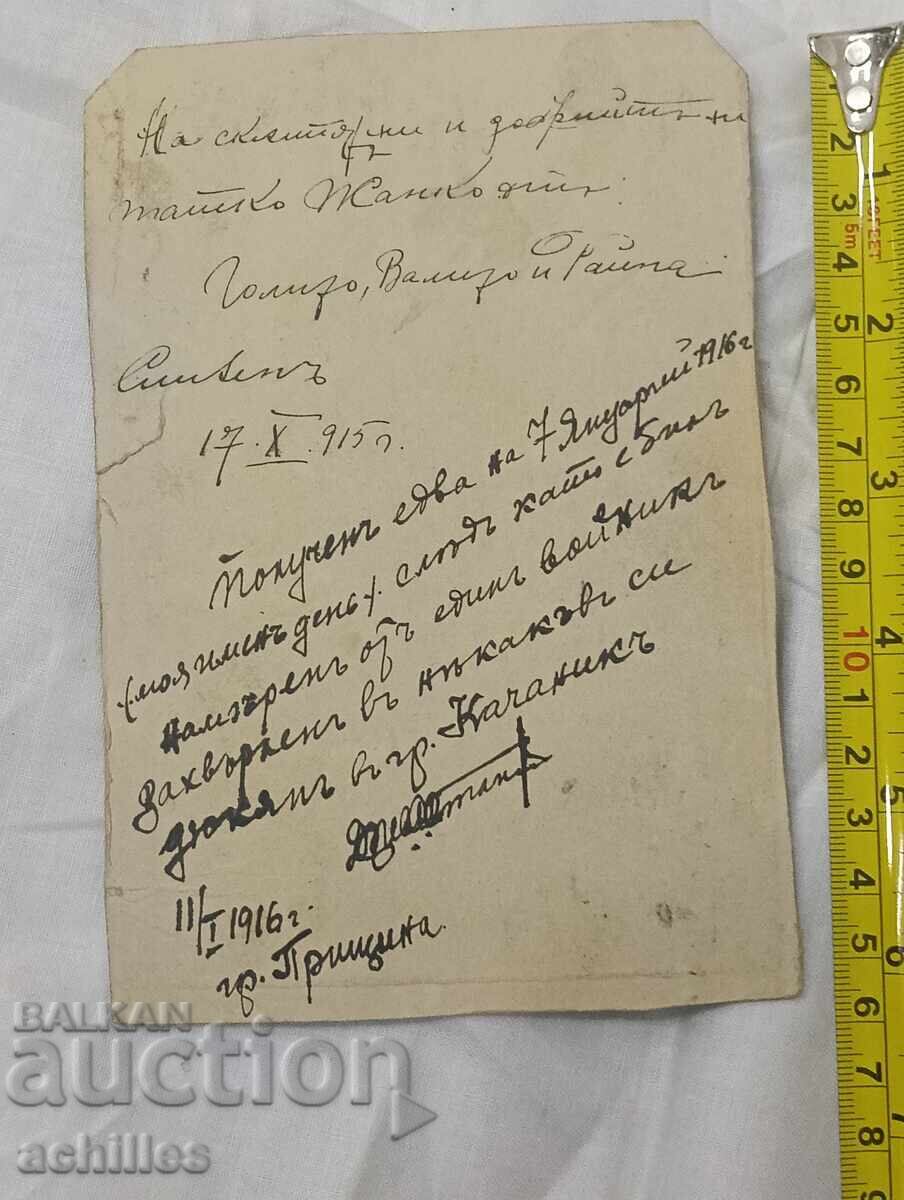 На скъпий ни и добрийтъ ни
татко Жанко отъ:
Голизо, Ванизо и Райна
Сливенъ
17.X.915г.
Полученъ едва на 7 Януарий 1916 г
(моя именъ день). следъ като е билъ
намѣренъ отъ единъ войникъ
захвърленъ въ нѣкакъвъ си
дюкянъ въ гр. Качаникъ
11/I 1916 г.
гр. Прищина.
BALKAN
auction
achilles
10FEET
5m
1
2
3
4
5
6
7
2
3
4
5
6
7
8
9
10
1
2
3
4
5
6
7
8
9